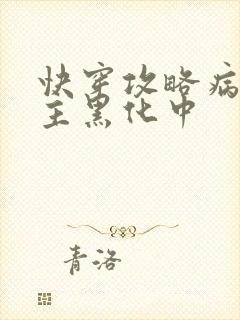 快穿攻略病
主黑化中
青洛